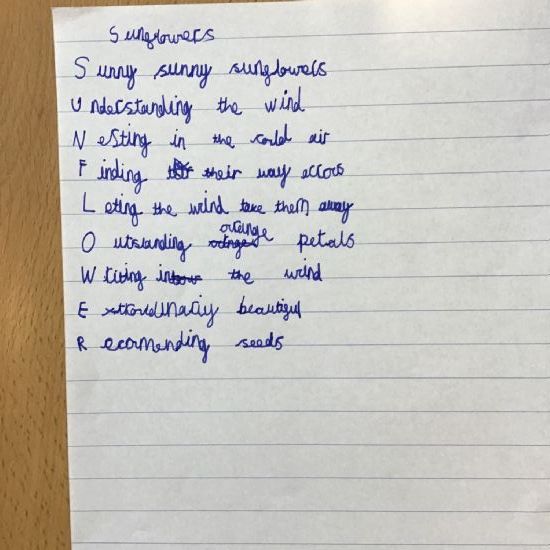 Sunflowers
Sunny sunny sunflowers
Understanding the wind
Nesting in the corld air
Finding their way accros
Leting the wind take them away
Outstanding orange petals
Writing in the wind
Exttordinariy beautiful
Recormending seeds